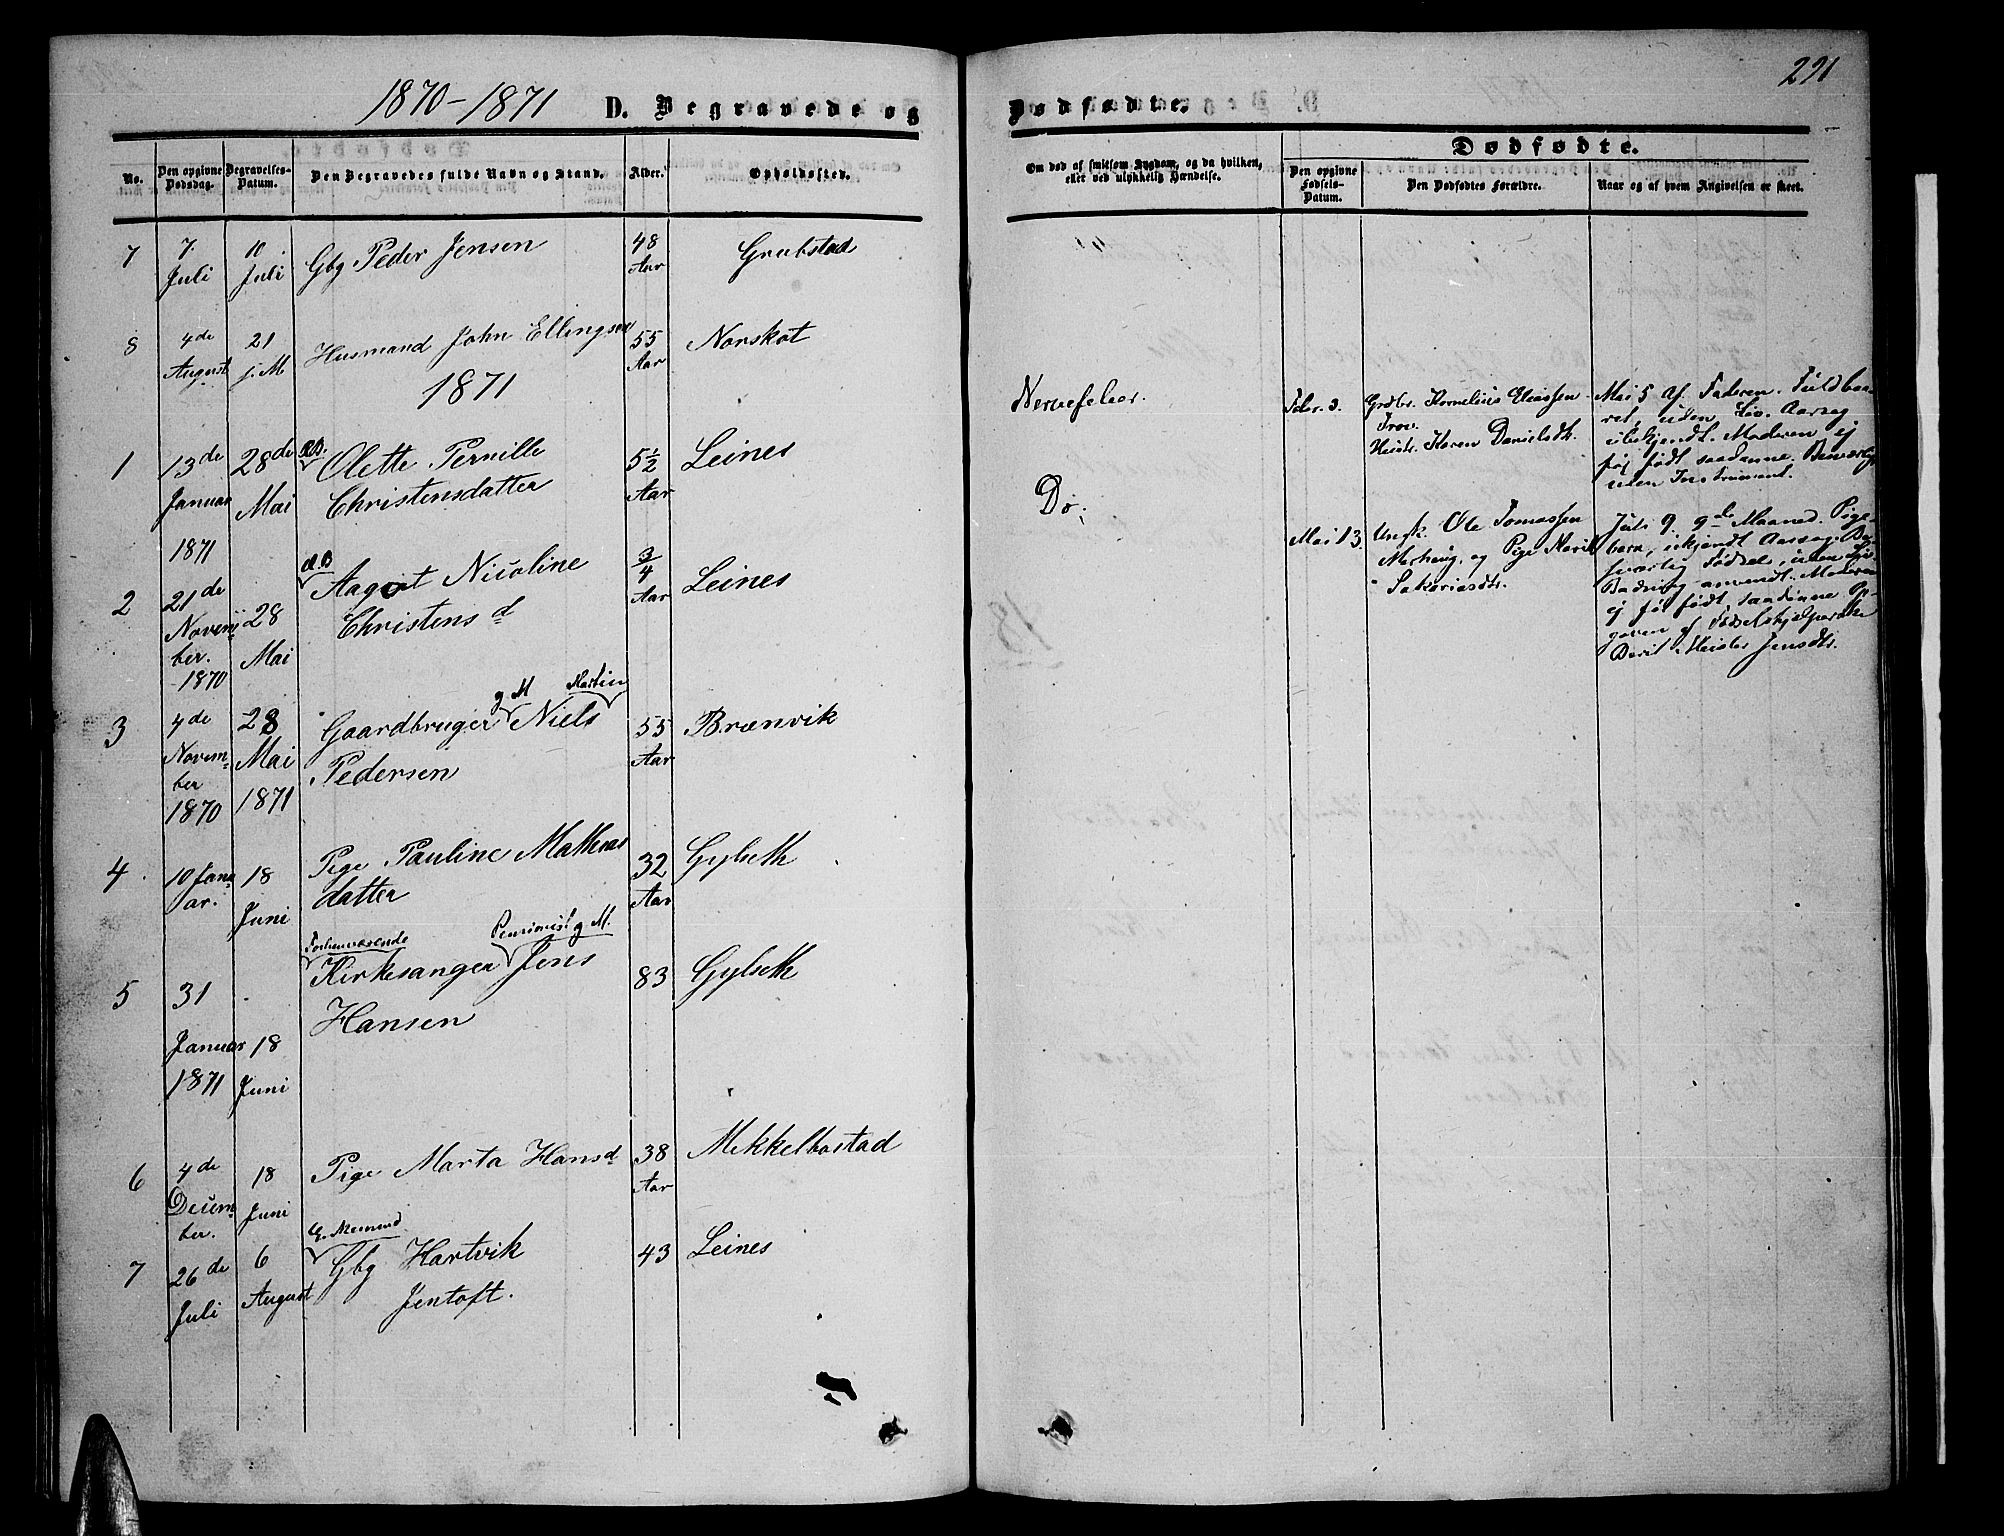 1870-1871 D. Begravede og
No. Den opgivne Dødsdag. Begravelses-Datum. Den Begravedes fulde Navn og Stand. Alder. Opholdssted.
7 7. Juli 10 Juli Gbg Peder Jensen 48 Aar Grubstad
8 4de August 21 s. M Husmand John Ellingsen 55 Aar Norskot
1871
1 13de Januar 1871 28de Mai Olette Pernille Christensdatter 5 1/2 Aar Leines
2 21de November 1870 28 Mai Aagot Nicoline Christensd 3/4 Aar Leines
g M Martin
3 4de November 1870 28 Mai 1871 Gaardbruger Niels Pedersen 55 Aar Brænvik
4 10 Januar. 18 Juni Pige Pauline Mathias datter 32 Aar Gylseth
Forhenværende Pensionist g M.
5 31 Januar 1871 18 Juni Kirkesanger Jens Hansen 83 Gylseth
6 4de December. 18 Juni Pige Marta Hansd 38 Aar Mekkelbostad
7 26de Juli 6 August Gbg Hartvik Jentoft. 43 Leines
291
Dødfødte.
Om død af smitsom Sygdom, og da hvilken, eller ved ulykkelig Hændelse.
Dødfødte.
Den opgivne Fødsels-Datum. Den Dødfødtes Forældre. Naar og af hvem Angivelsen er skeet.
Nervefeber.
Do.
Febr. 3. Grdbr. Kornelius Eliassen
Hustr. Karen Danielsdtr.
Mai 5 af Faderen. Fuldbaaret, uden Liv. Aarsag
ubekjendt. Moderen ej
før født saadanne.
uden Instrument.
Mai 13. Ungk. Ole Tomassen
og Pige Marit
Sakariasdtr.
Juli 9. 9de Maaned. Pige-
barn, ukjendt Aarsag.
Fødsel, uden
anvendt. Moderen
ej før født saadanne Op-
given af Fødselshjælperske
Berit Jensdtr.